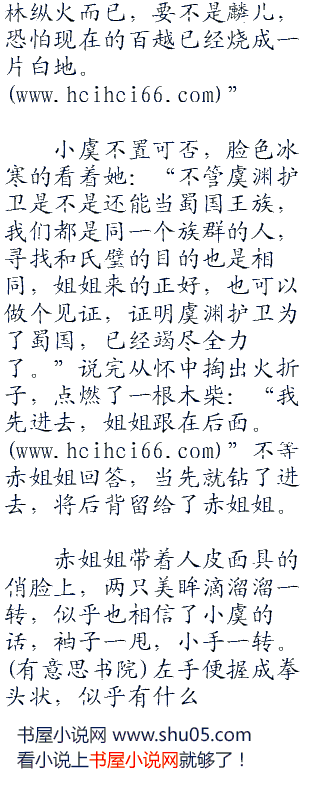 林纵火而已，要不是麟儿，
恐怕现在的百越已经烧成一
片白地。
(www.hcihci66.com)”
小虞不置可否，脸色冰
寒的看着她：“不管虞渊护
卫是不是还能当蜀国王族，
我们都是同一个族群的人，
寻找和氏璧的目的也是相
同，姐姐来的正好，也可以
做个见证，证明虞渊护卫为
了蜀国，已经竭尽全力
了。”说完从怀中掏出火折
子，点燃了一根木柴：“我
先进去，姐姐跟在后面。
(www.hcihci66.com)”不等
赤姐姐回答，当先就钻了进
去，将后背留给了赤姐姐。
赤姐姐带着人皮面具的
俏脸上，两只美眸滴溜溜一
转，似乎也相信了小虞的
话，袖子一甩，小手一转。
(有意思书院)左手便握成拳
头状，似乎有什么
书屋小说网 www.shu05.com
看小说上书屋小说网就够了！